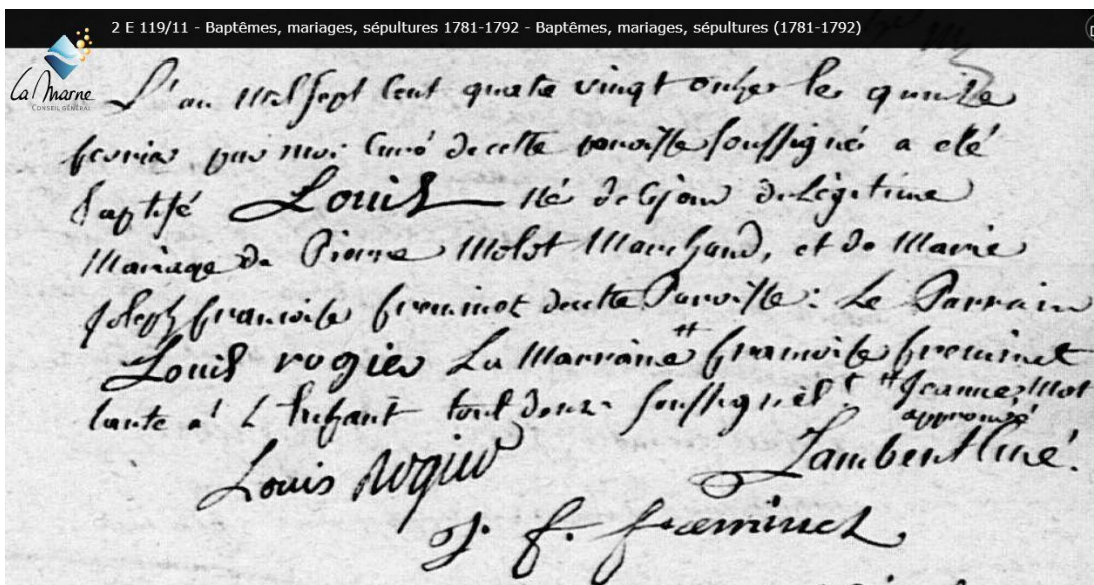 2 E 119/11 - Baptêmes, mariages, sépultures 1781-1792 - Baptêmes, mariages, sépultures (1781-1792)
La Marne
CONSEIL GÉNÉRAL
L'an Mil sept Cent quatre vingt onze les quinze
fevrier par moi Curé de cette paroisse soussigné a eté
baptisé Louis né de ce jour de Légitime
Mariage de Pierre Molot Marchand, et de Marie
Joseph francoise freminet de cette Paroisse : Le Parrain
Louis rogier La Marraine # francoise freminet
tante a L'Enfant tout deux soussignés # Jeanne, Mot
approuvé
Louis rogier
Lambert Curé.
J. f. freminet